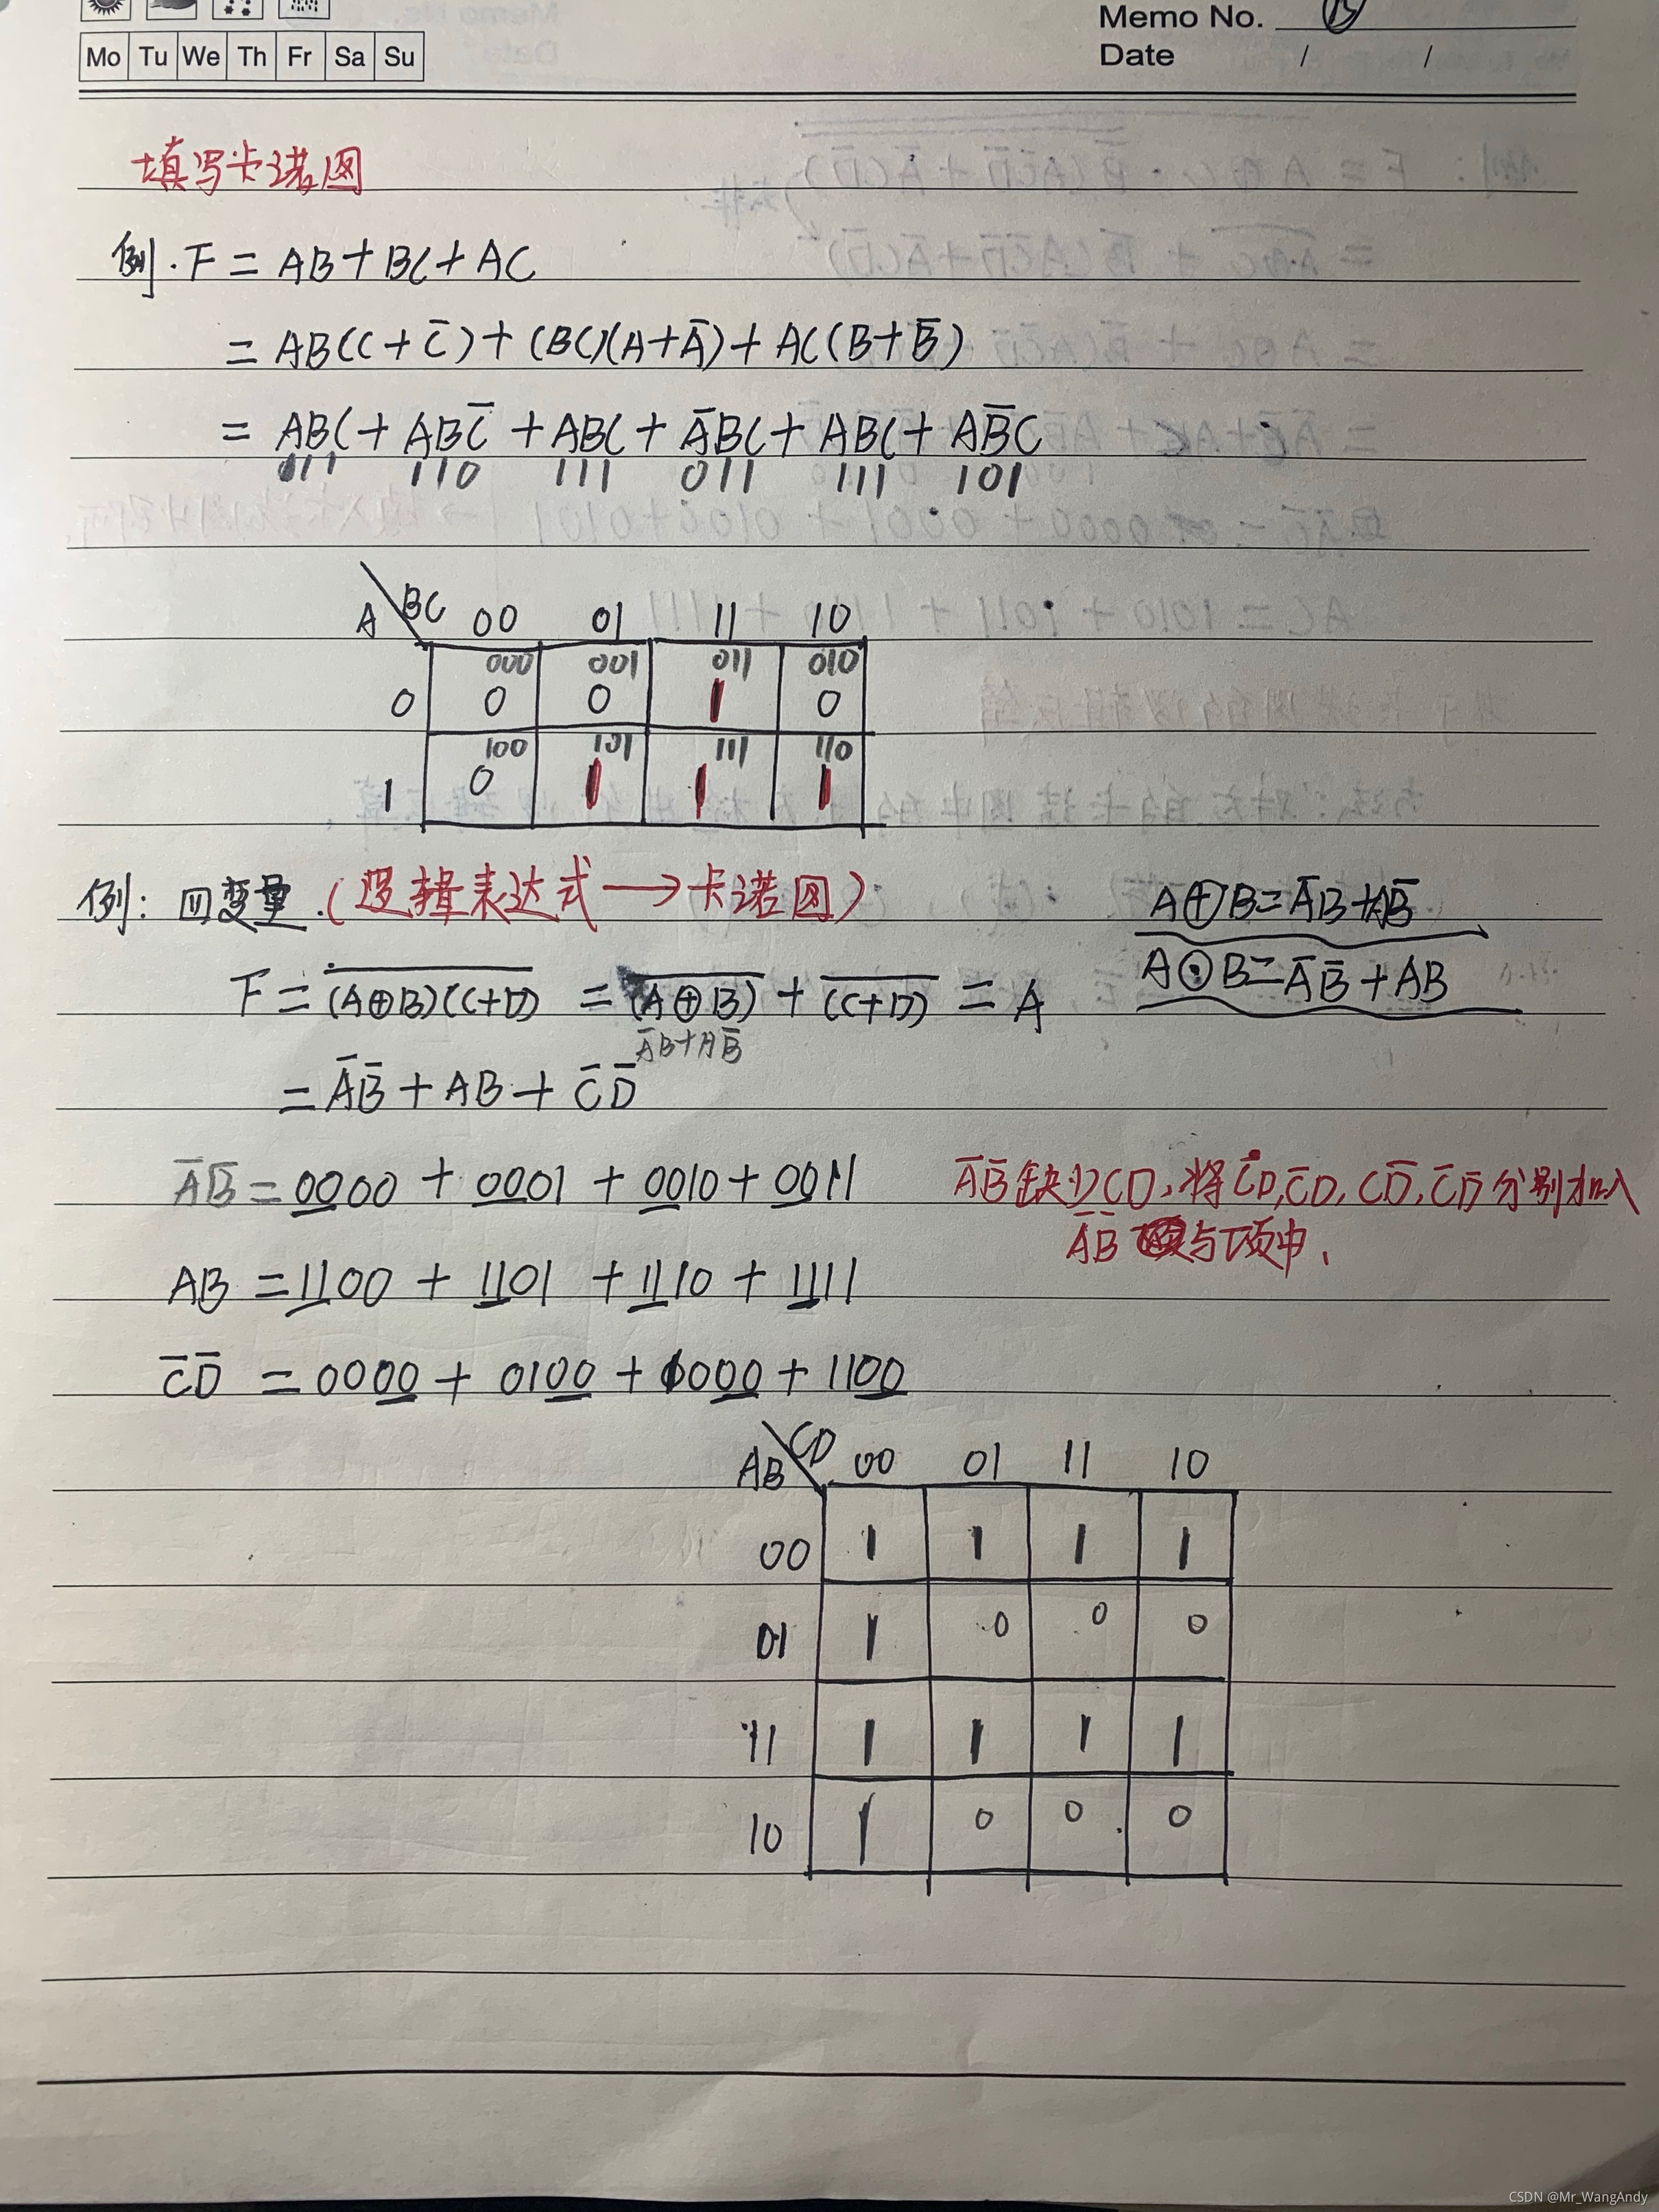 Memo No.
Mo Tu We Th Fr Sa Su
Date / /
填写卡诺图
例. F = AB + BC + AC
= AB(C + C̅) + (BC)(A + A̅) + AC(B + B̅)
= ABC + ABC̅ + ABC + A̅BC + ABC + AB̅C
111 110 111 011 111 101
A BC 00 01 11 10
000 001 011 010
0 0 0 1 0
100 101 111 110
1 0 1 1 1
例: 四变量. (逻辑表达式 → 卡诺图)
A⊕B = A̅B + AB̅
A⊙B = A̅B̅ + AB
F = \overline{(A⊕B)(C+D)} = \overline{(A⊕B)} + \overline{(C+D)} = A
A̅B + AB̅
= A̅B̅ + AB + C̅D̅
A̅B̅ = 0000 + 0001 + 0010 + 0011
A̅B̅缺少CD,将CD,C̅D,CD̅,C̅D̅分别加入
A̅B̅与项中.
AB = 1100 + 1101 + 1110 + 1111
C̅D̅ = 0000 + 0100 + 1000 + 1100
AB CD 00 01 11 10
00 1 1 1 1
01 1 0 0 0
11 1 1 1 1
10 1 0 0 0
CSDN @Mr_WangAndy